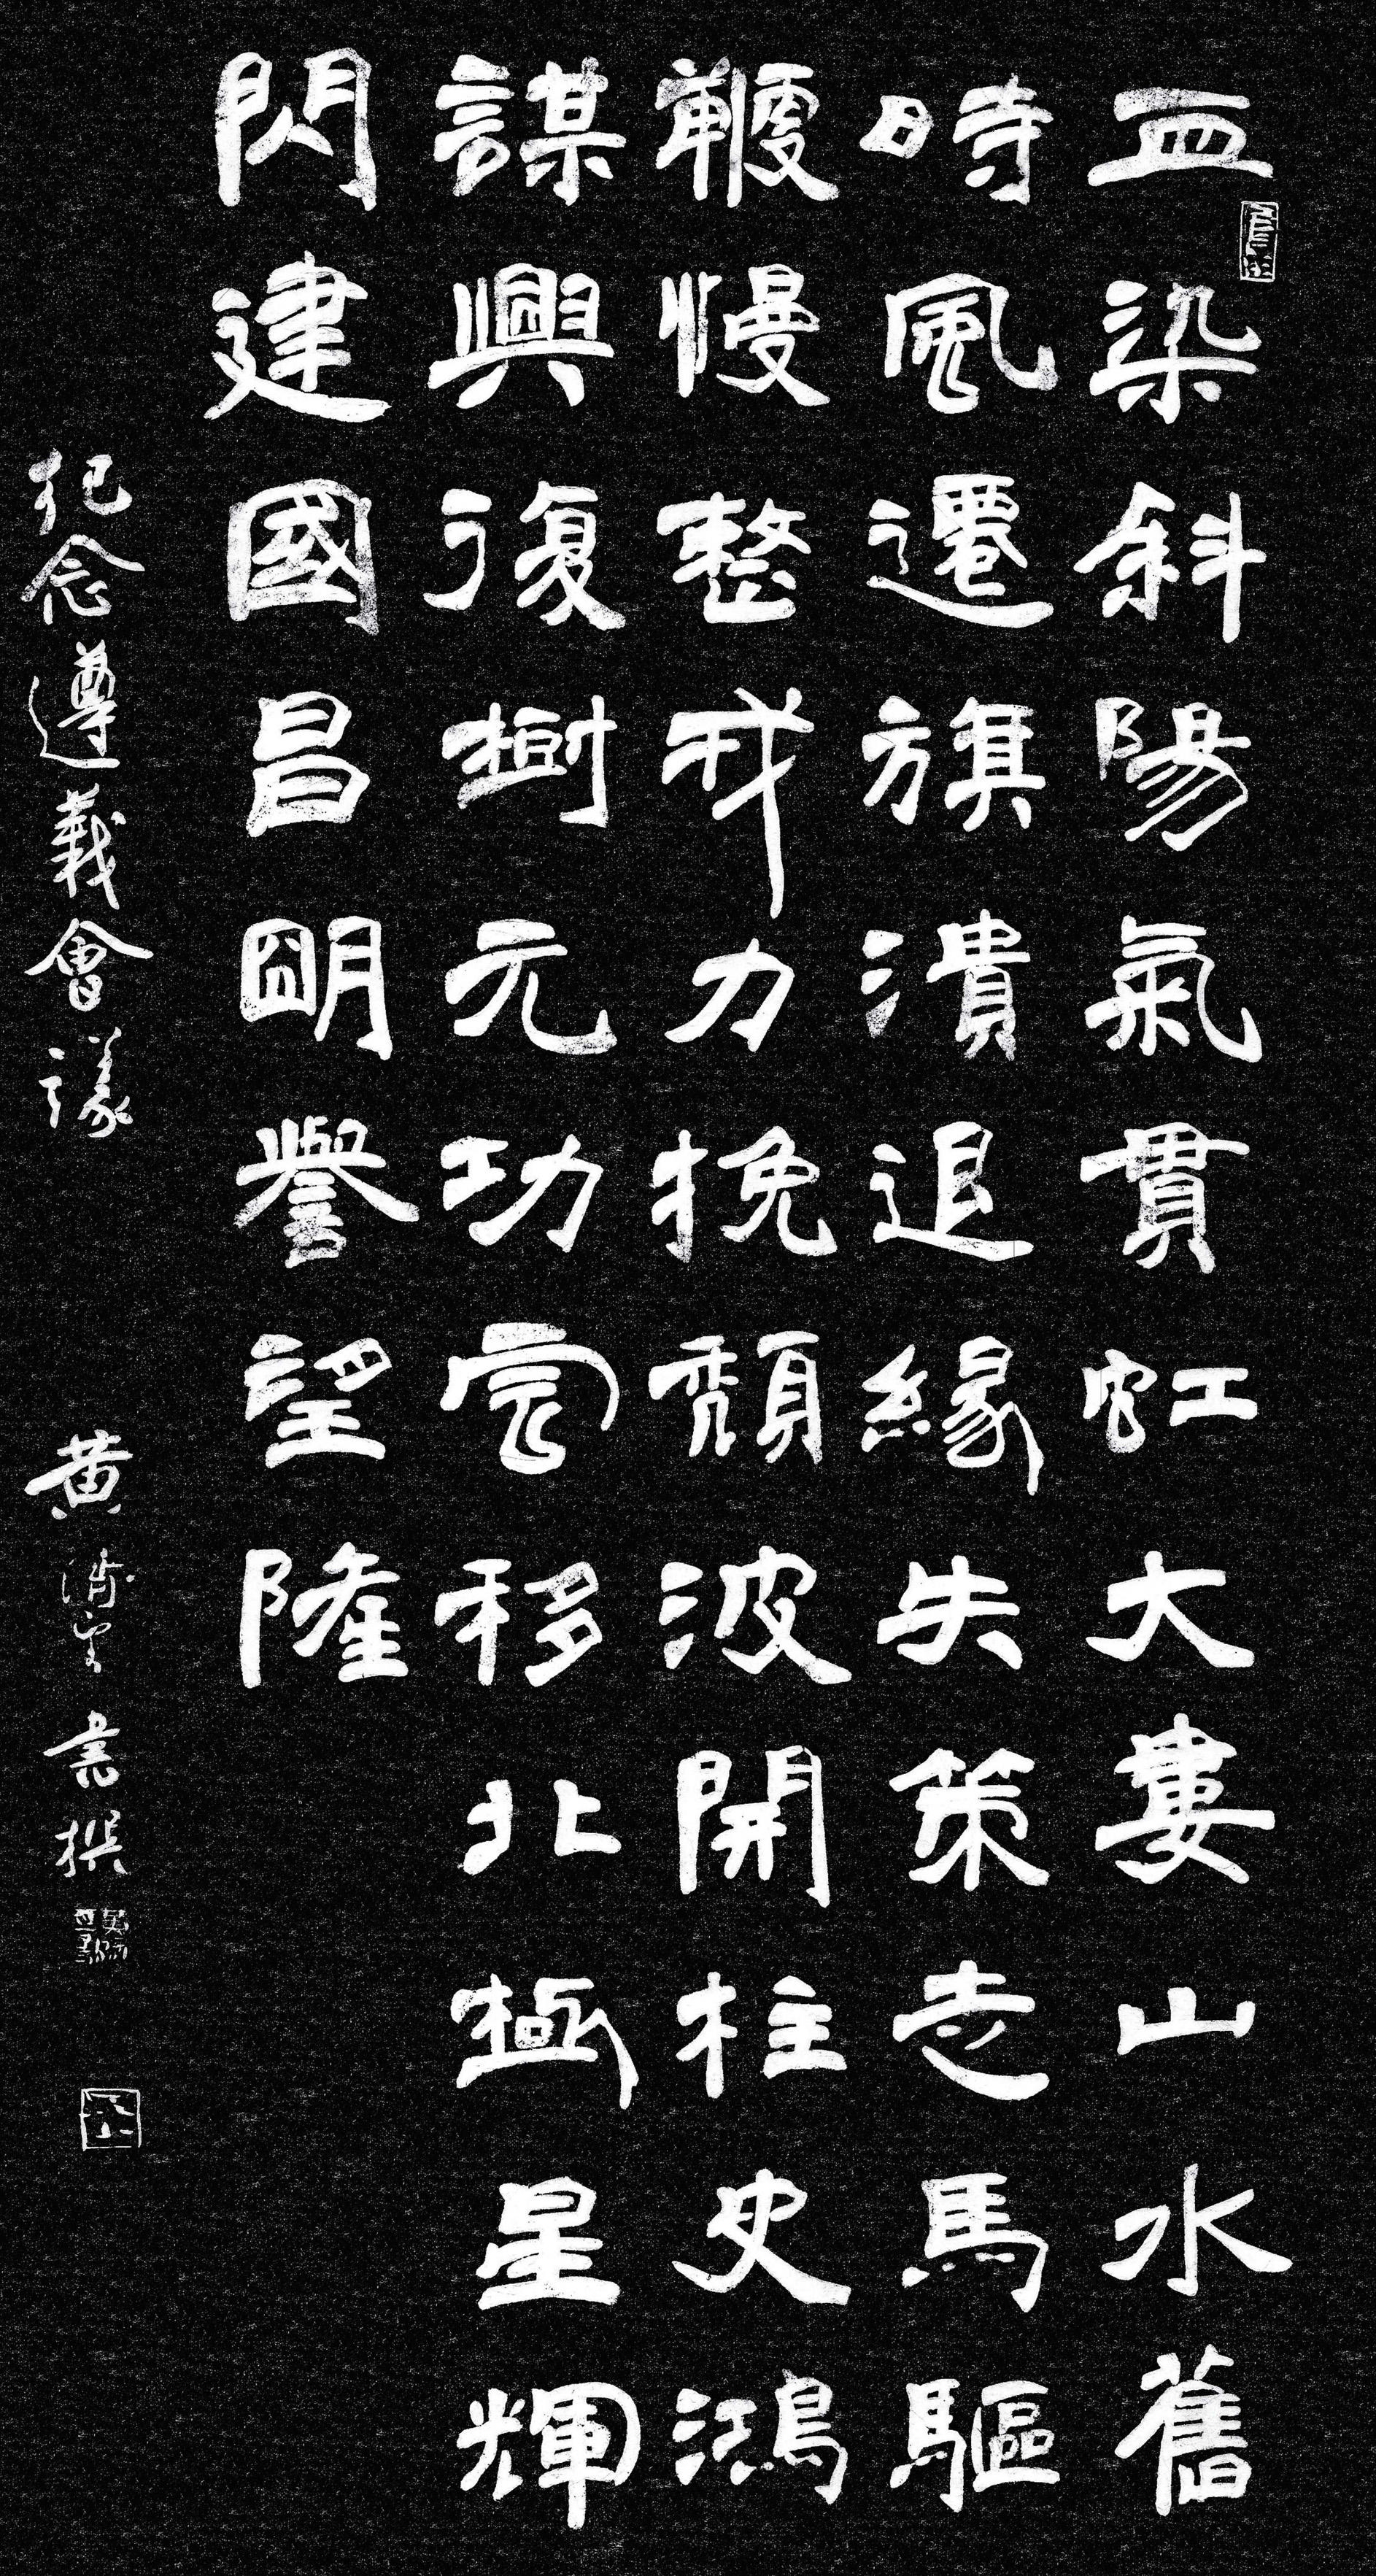 血染斜陽氣貫虹大婁山水舊
時風遷旗潰退緣失策走馬驅
鞭慢整戎力挽頹波開柱史鴻
謀興復樹元功雲移北極星輝
閃建國昌明譽望隆
紀念遵義會議 黃 書撰